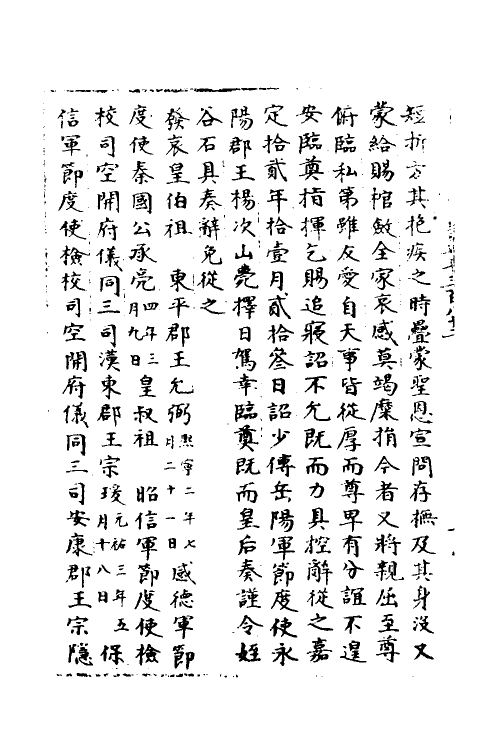 短折方其抱疾之時疊蒙聖恩宣問存撫及其身沒又
蒙給賜棺斂全家哀感莫竭糜捐今者又將親屈至尊
俯臨私第雖友愛自天事皆從厚而尊卑有分誼不遑
安臨奠指揮乞賜追寢詔不允既而力具控辭從之嘉
定拾貳年拾壹月貳拾叄日詔少傅岳陽軍節度使永
陽郡王楊次山薨擇日駕幸臨奠既而皇后奏謹令姪
谷石具奏辭免從之
發哀皇伯祖 東平郡王允弼熙寧二年七月二十一日感德軍節
度使秦國公承亮四年三月九日皇叔祖 昭信軍節度使檢
校司空開府儀同三司漢東郡王宗瑗元祐三年五月十八日保
信軍節度使檢校司空開府儀同三司安康郡王宗隱